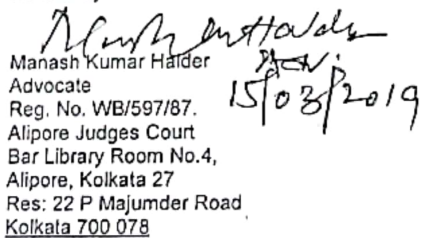 Manash Kumar Halder
Advocate
15/03/2019
Reg. No. WB/597/87.
Alipore Judges Court
Bar Library Room No.4,
Alipore, Kolkata 27
Res: 22 P Majumder Road
Kolkata 700 078